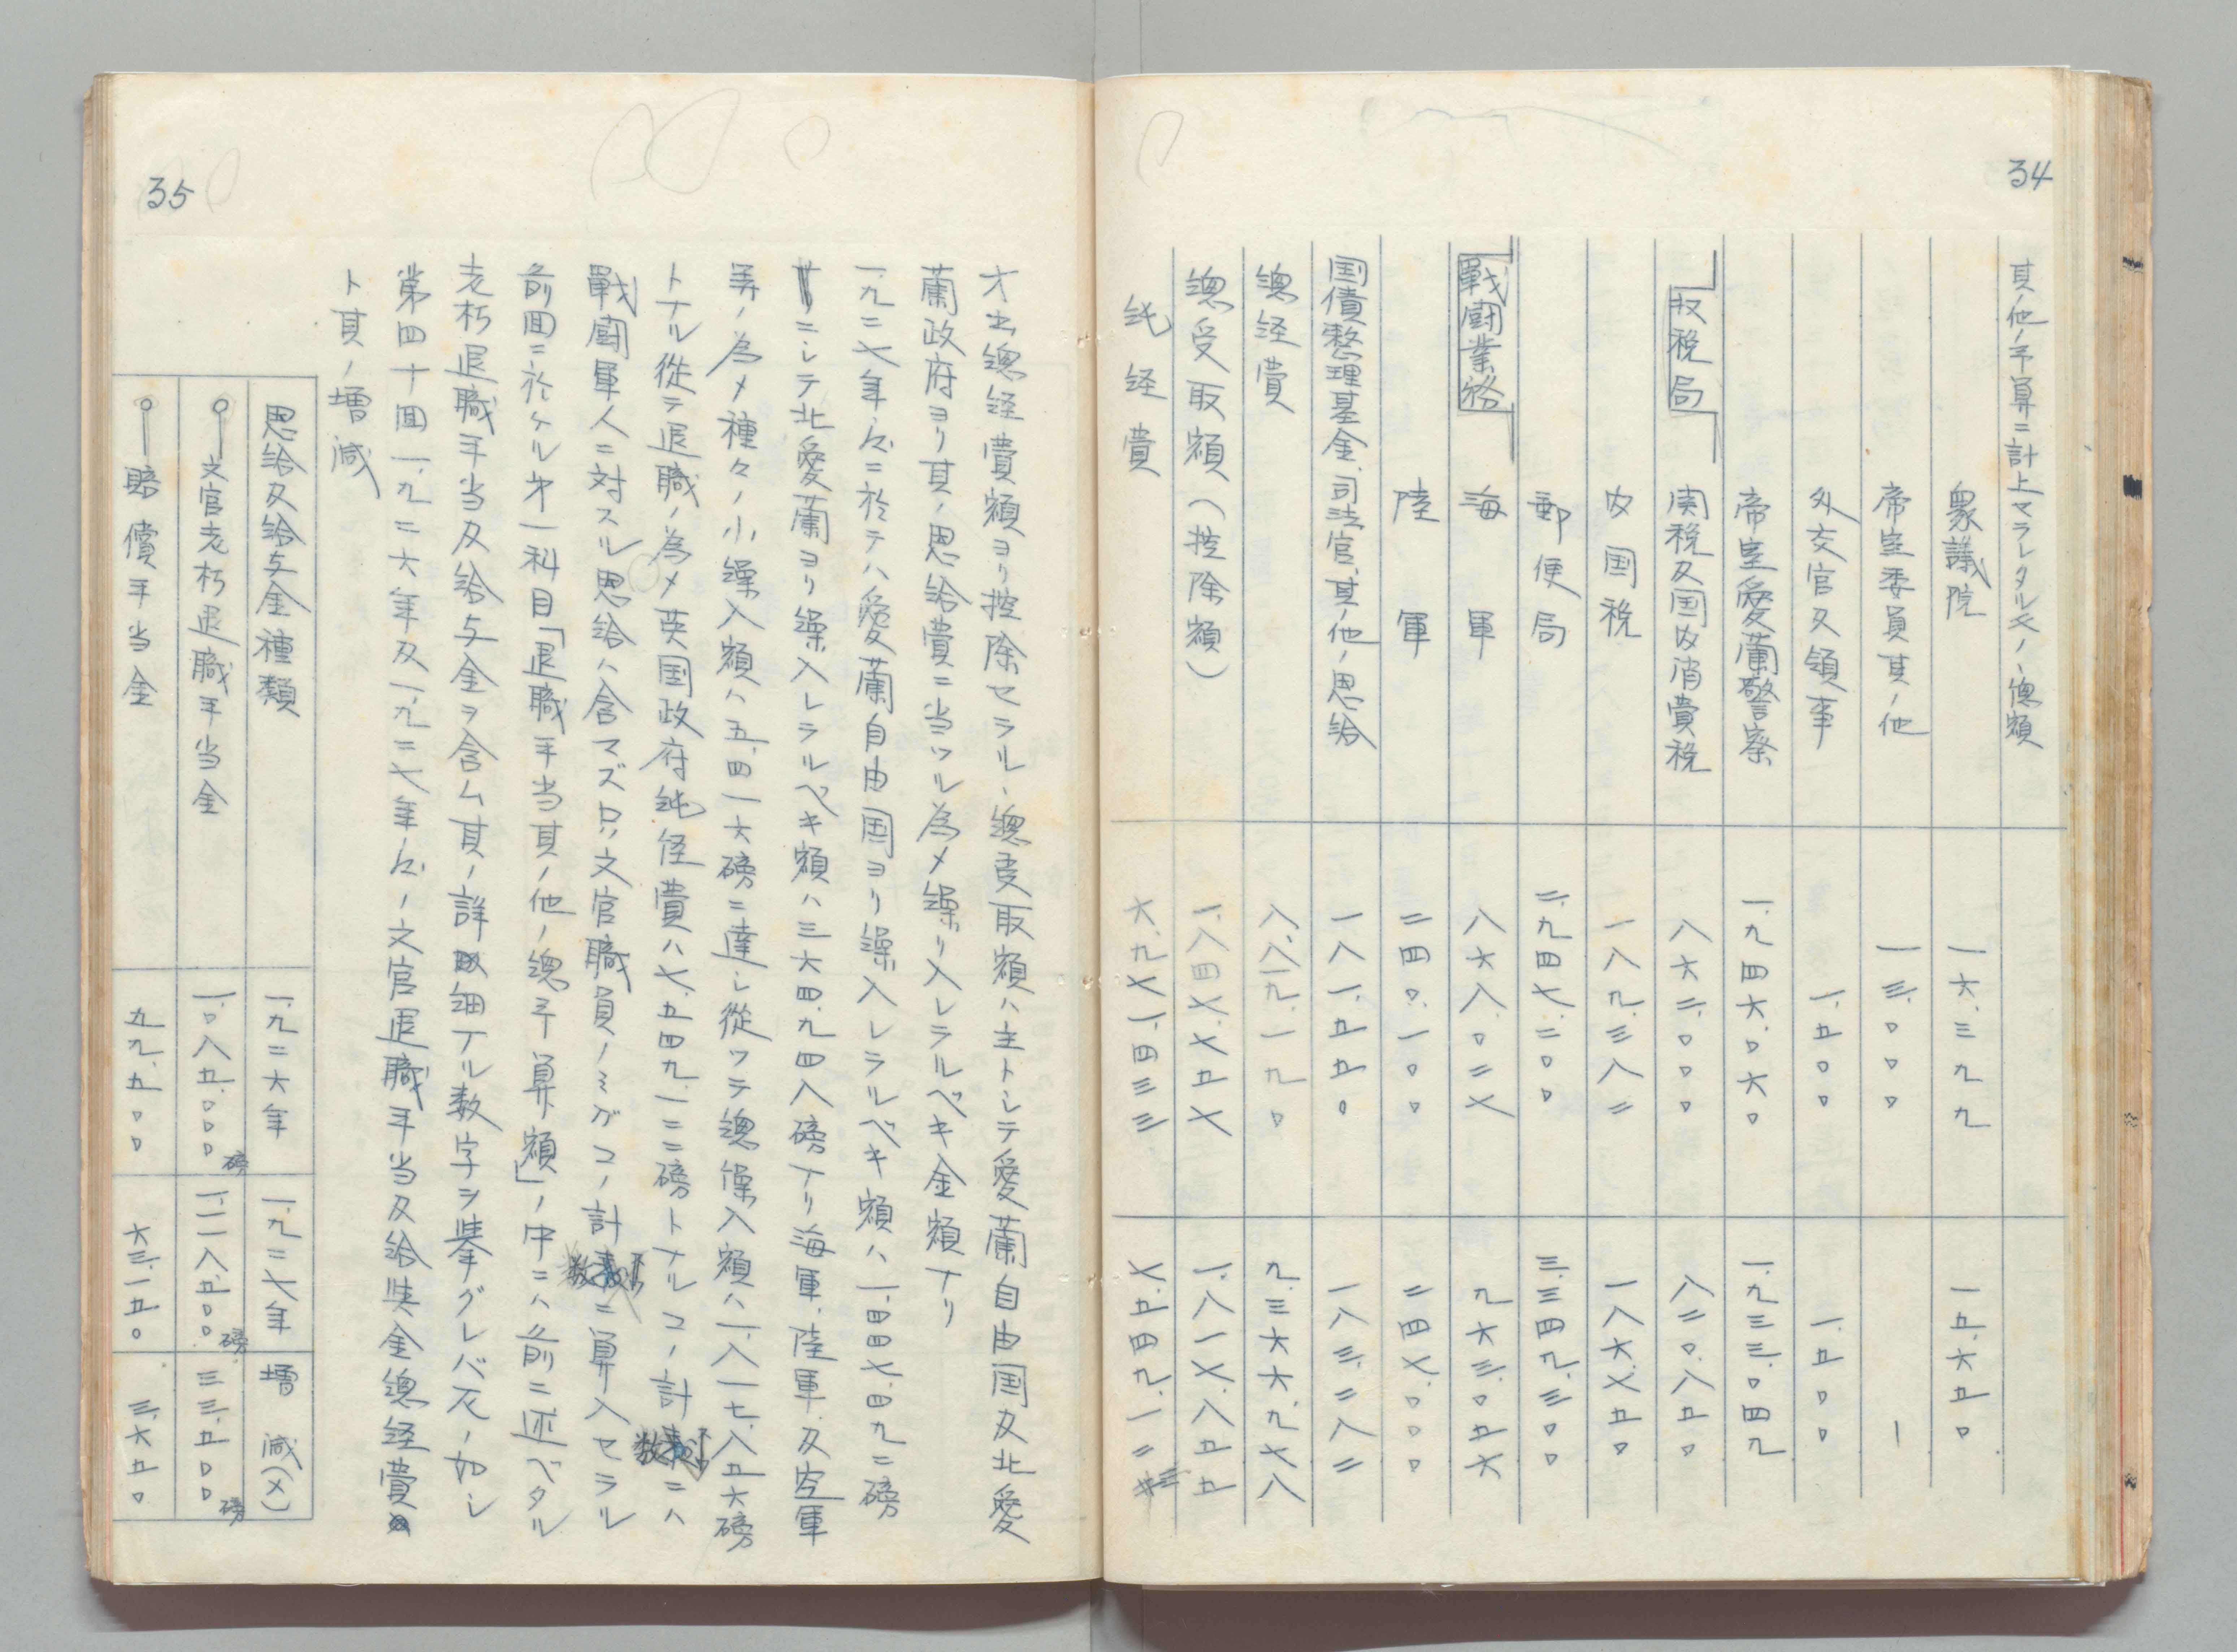 34
其ノ他ノ予算ニ計上セラレタルモノヽ總額
衆議院 一六、三九九 一五、六五〇
帝室委員其ノ他 一三、〇〇〇 ―
外交官及領事 一、五〇〇 一、五〇〇
帝室愛蘭警察 一、九四六、〇六〇 一、九三三、〇四九
収税局 関税及国内消費税 八六二、〇〇〇 八二〇、八五〇
内国税 一八九、三八二 一八六、七五〇
郵便局 二、九四七、二〇〇 三、三四九、三〇〇
戰闘業務 海軍 八六八、〇二七 九六三、〇五六
陸軍 二四〇、一〇〇 二四七、〇〇〇
国債整理基金、司法官、其ノ他ノ恩給 一八一、五五〇 一八三、二八二
總経費 八、八一九、一九〇 九、三六六、九七八
總受取額(控除額) 一、八四七、七五七 一、八一七、八五五
純経費 六、九七一、四三三 七、五四九、一二三
35
才出總経費額ヨリ控除セラルヽ總受取額ハ主トシテ愛蘭自由国及北愛
蘭政府ヨリ其ノ恩給費ニ当ツル為メ繰リ入レラルベキ金額ナリ
一、九二七年度ニ於テハ愛蘭自由国ヨリ繰入レラルベキ額ハ一、四四七、四九二磅
ニシテ北愛蘭ヨリ繰入レラルベキ額ハ三六四、九四八磅ナリ海軍、陸軍及空軍
等ノ為メ種々ノ小繰入額ハ五、四一六磅ニ達シ從ツテ總繰入額ハ一、八一七、八五六磅
トナル從テ退職ノ為メ英国政府純経費ハ七、五四九、一二二磅トナルコノ計数ニハ
戰闘軍人ニ対スル恩給ハ含マズ只文官職員ノミガコノ計数ニ算入セラル
前回ニ於ケル才一科目「退職手当其ノ他ノ總予算額」ノ中ニハ前ニ述ベタル
老朽退職手当及給与金ヲ含ム其ノ詳細ナル数字ヲ挙グレバ左ノ如シ
第四十回一、九二六年及一、九二七年度ノ文官退職手当及給与金總経費
ト其ノ増減
恩給及給与金種類 一、九二六年 一、九二七年 増減(×)
文官老朽退職手当金 一、〇八五、〇〇〇磅 一、一一八、五〇〇磅 三三、五〇〇磅
賠償手当金 五九、五〇〇 六三、一五〇 三、六五〇